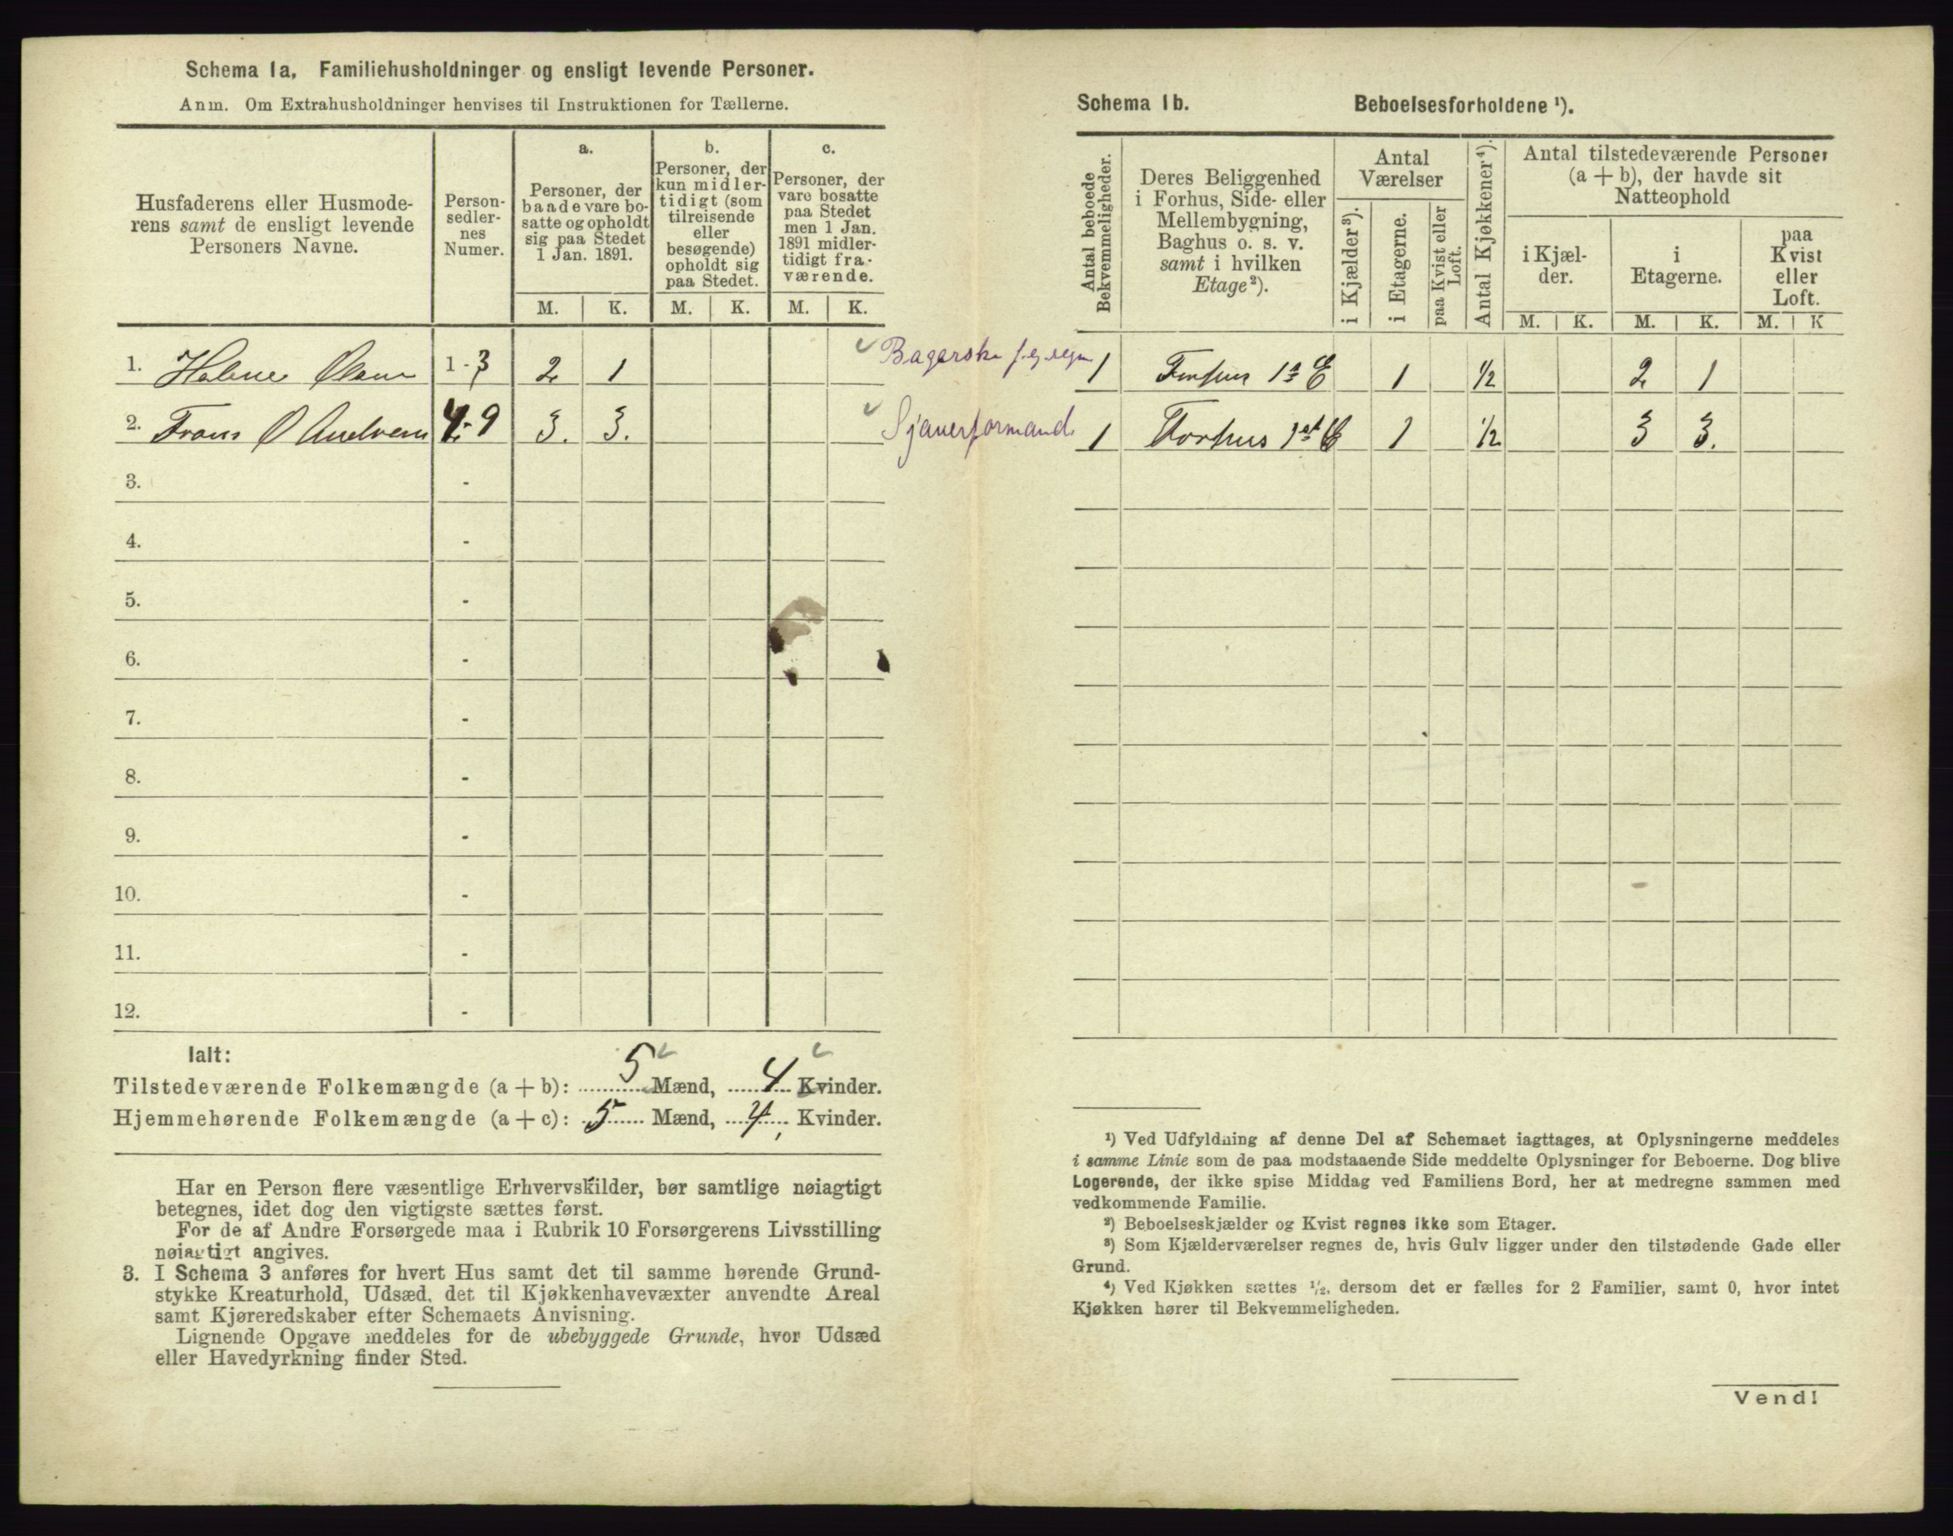 Schema 1a. Familiehusholdninger og ensligt levende Personer.
Anm. Om Extrahusholdninger henvises til Instruktionen for Tællerne.
Husfaderens eller Husmode-
rens samt de ensligt levende
Personers Navne.
Person-
sedler-
nes
Numer.
a.
Personer, der
baade vare bo-
satte og opholdt
sig paa Stedet
1 Jan. 1891.
b.
Personer, der
kun midler-
tidigt (som
tilreisende
eller
besøgende)
opholdt sig
paa Stedet.
c.
Personer, der
vare bosatte
paa Stedet
men 1 Jan.
1891 midler-
tidigt fra-
værende.
M. K. M. K. M. K.
1. Helene Olsen 1-3 2 1 Bagerske f. eg. regn
2. Frans O Andersen 4-9 3. 3. Sjauerformand
3. -
4. -
5. -
6. -
7. -
8. -
9. -
10. -
11. -
12. -
Ialt:
Tilstedeværende Folkemængde (a + b): 5 Mænd, 4 Kvinder.
Hjemmehørende Folkemængde (a + c): 5 Mænd, 4 Kvinder.
Har en Person flere væsentlige Erhvervskilder, bør samtlige nøiagtigt
betegnes, idet dog den vigtigste sættes først.
For de af Andre Forsørgede maa i Rubrik 10 Forsørgerens Livsstilling
nøiagtigt angives.
3. I Schema 3 anføres for hvert Hus samt det til samme hørende Grund-
stykke Kreaturhold, Udsæd, det til Kjøkkenhavevæxter anvendte Areal
samt Kjøreredskaber efter Schemaets Anvisning.
Lignende Opgave meddeles for de ubebyggede Grunde, hvor Udsæd
eller Havedyrkning finder Sted.
Schema 1b. Beboelsesforholdene ¹).
Antal beboede
Bekvemmeligheder.
Deres Beliggenhed
i Forhus, Side- eller
Mellembygning,
Baghus o. s. v.
samt i hvilken
Etage²).
Antal
Værelser
i Kjælder³).
i Etagerne.
paa Kvist eller
Loft.
Antal Kjøkkener⁴).
Antal tilstedeværende Personer
(a + b), der havde sit
Natteophold
i Kjæl-
der.
i
Etagerne.
paa
Kvist
eller
Loft.
M. K. M. K. M. K
1 Forhus 1ste E 1 ½ 2 1
1 Forhus 1ste E 1 ½ 3 3.
¹) Ved Udfyldning af denne Del af Schemaet iagttages, at Oplysningerne meddeles
i samme Linie som de paa modstaaende Side meddelte Oplysninger for Beboerne. Dog blive
Logerende, der ikke spise Middag ved Familiens Bord, her at medregne sammen med
vedkommende Familie.
²) Beboelseskjælder og Kvist regnes ikke som Etager.
³) Som Kjælderværelser regnes de, hvis Gulv ligger under den tilstødende Gade eller
Grund.
⁴) Ved Kjøkken sættes ¹/₂, dersom det er fælles for 2 Familier, samt 0, hvor intet
Kjøkken hører til Bekvemmeligheden.
Vend!